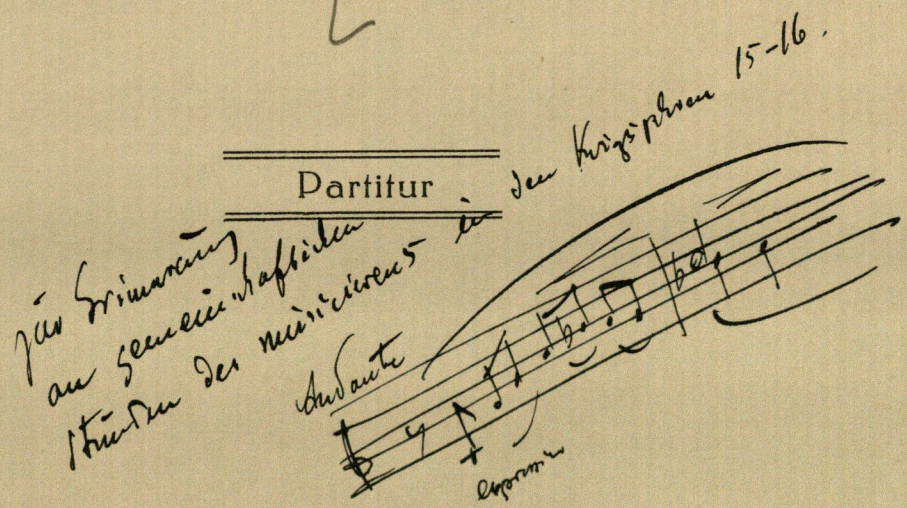 Partitur
zur Erinnerung
an gemeinschaftlichen
Stunden des musicierens in den Kriegsjahren 15-16.
Andante
espressivo